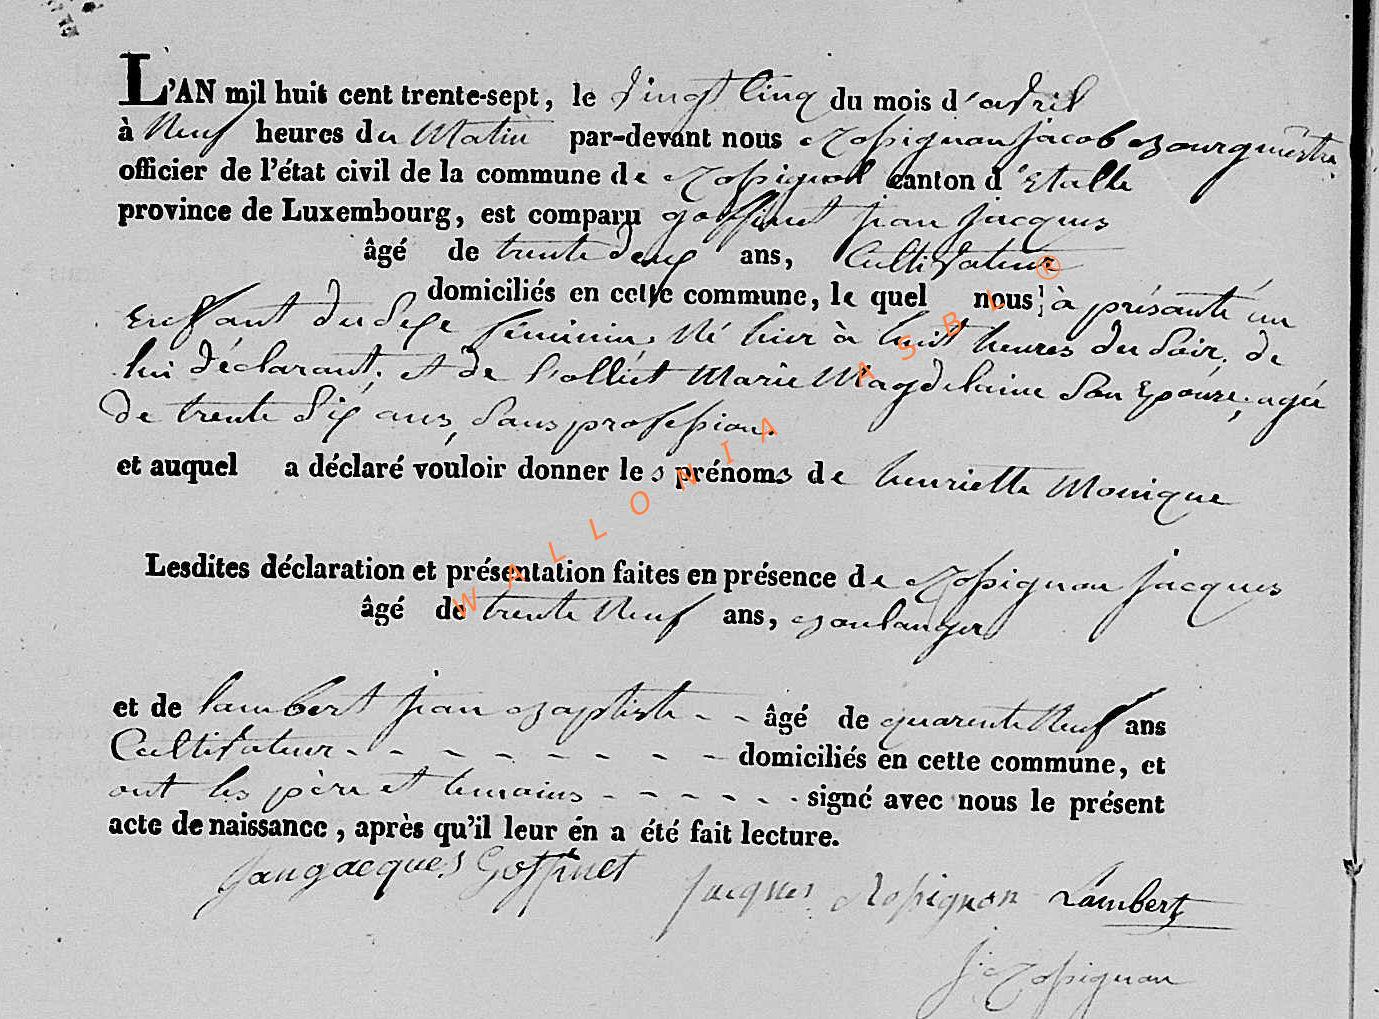 L'AN mil huit cent trente-sept, le vingt cinq du mois d'avril
à neuf heures du matin par-devant nous Rossignon jacob Bourgmestre
officier de l'état civil de la commune de Rossignol canton d'Etalle
province de Luxembourg, est comparu goffinet jean jacques
âgé de trente deux ans, Cultivateur
domiciliés en cette commune, le quel nous à présanté un
Enffant du Sexe féminin, Né hier à huit heures du Soir, de
lui déclarant, et de Marie Magdelaine Son Epouse, agée
de trente Six ans, Sans profession.
et auquel a déclaré vouloir donner les prénoms de henriette Monique
Lesdites déclaration et présentation faites en présence de Rossignon jacques
âgé de trente Neuf ans, Boulanger
et de lambert jean Baptiste - - âgé de quarente Neuf ans
Cultivateur - - - - - - - - domiciliés en cette commune, et
ont les père et temoins - - - - - - signé avec nous le présent
acte de naissance, après qu'il leur én a été fait lecture.
Janjacques Goffinet jacques Rossignon Lambert
J. Rossignon
WALLONIA ASBL ®